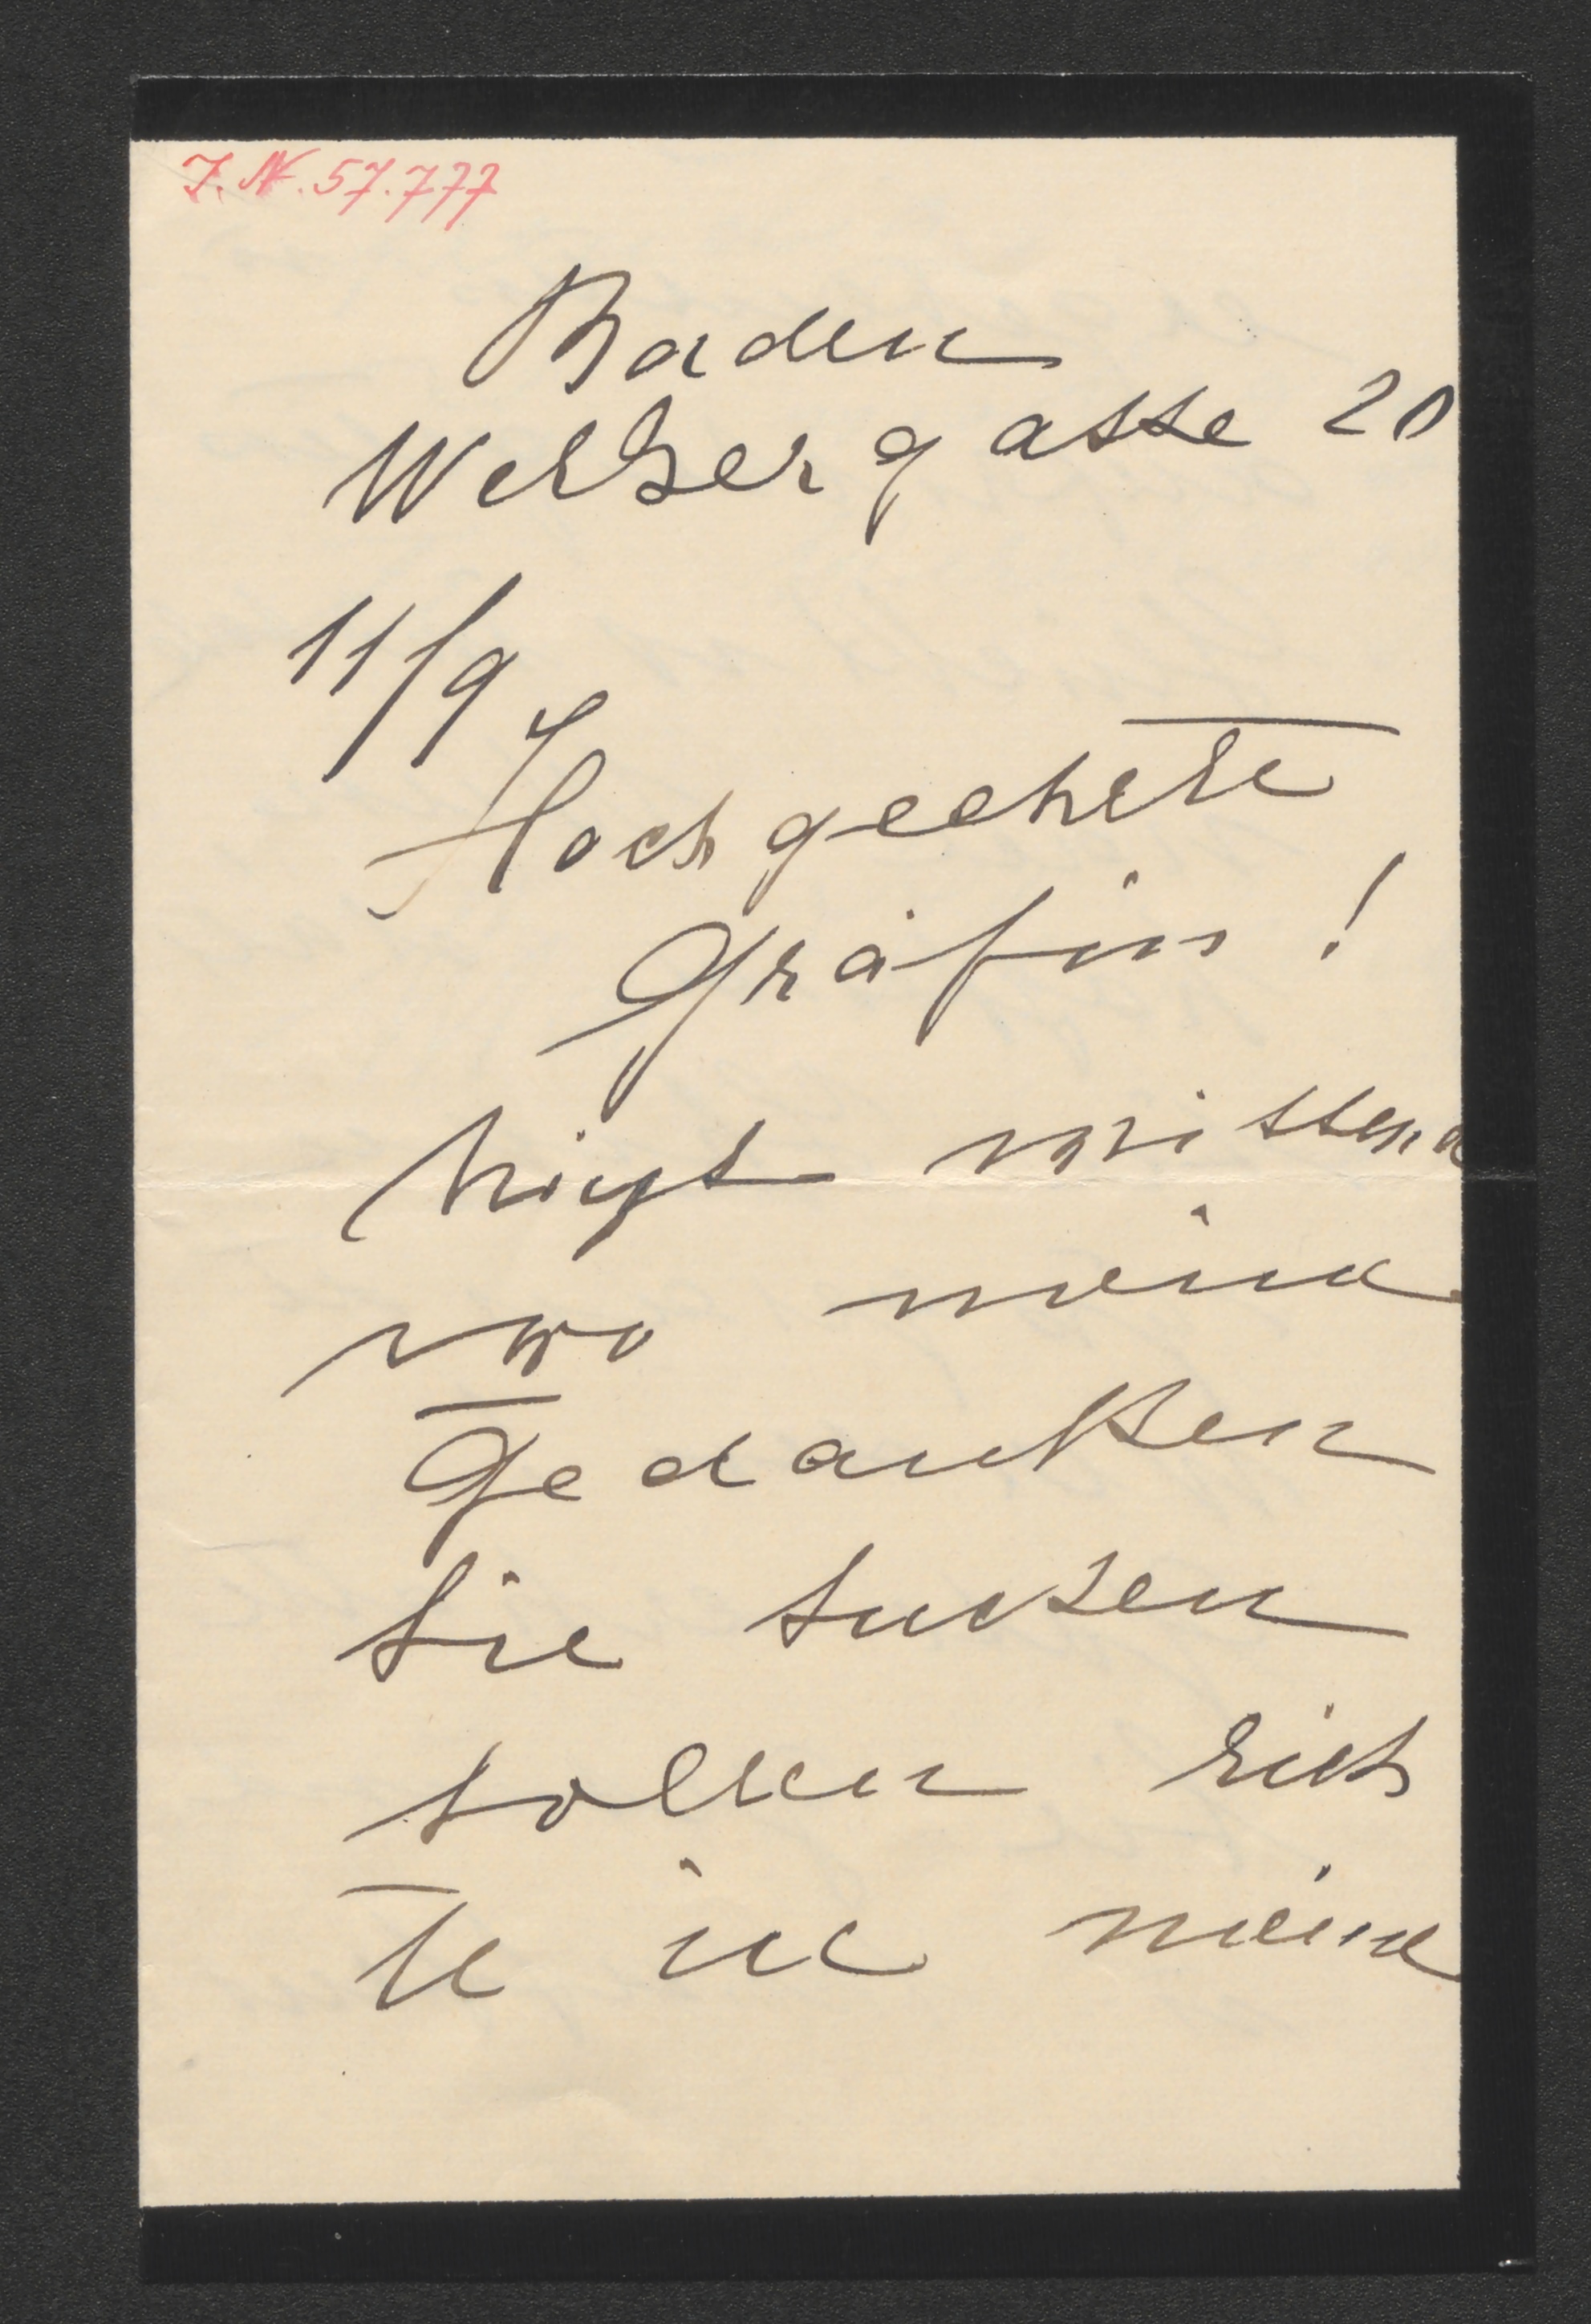 I.N. 57.777
Baden
Welzergasse 20
11/9
Hochgeehrte
Gräfin!
Nicht wissend
wo meine
Gedanken
Sie suchen
sollen rich
te ich meine